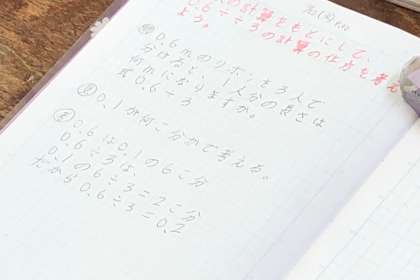 の計算をもとにして、
0.6÷3の計算の仕方を考え
よう。
問 0.6mのリボンを3人で
分けると、1人分の長さは
何mになりますか。
式 0.6÷3
0.1が何こ分かで考える。
0.6は0.1の6こ分
0.6÷3は、
0.1の6÷3=2こ分
だから0.6÷3=0.2